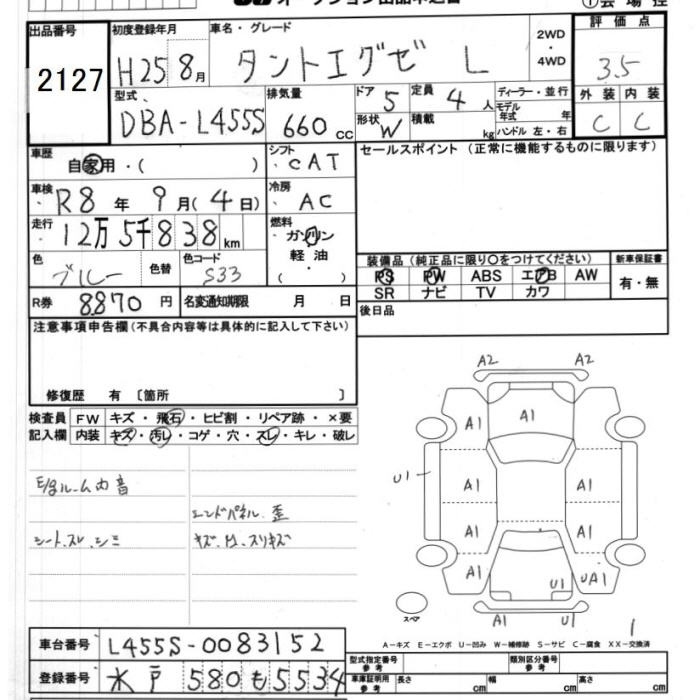 オークション出品申込書
①会場控
出品番号 2127
初度登録年月 H25 8月
車名・グレード タントエグゼ L
2WD・4WD
評価点 3.5
型式 DBA-L455S
排気量 660 cc
ドア 5
定員 4人
形状 W
積載 kg
ディーラー・並行
モデル年式 年
ハンドル 左・右
外装 C
内装 C
車歴 自家用・( )
シフト CAT
セールスポイント(正常に機能するものに限ります)
車検 R8年 9月(4日)
冷房 AC
走行 12万5千838km
燃料 ガソリン 軽油・
色 ブルー
色替
色コード S33
装備品(純正品に限り○をつけてください)
新車保証書
PS PW ABS エアB AW
SR ナビ TV カワ
有・無
R券 8870円
名変通知期限 月 日
後日品
注意事項申告欄(不具合内容等は具体的に記入して下さい)
修復歴 有 〔箇所 〕
検査員記入欄
FW キズ・飛石・ヒビ割・リペア跡・×要
内装 キズ・汚レ・コゲ・穴・スレ・キレ・破レ
E/gルーム内音
エンドパネル歪
シートスレ、シミ
A2 A2
A1
A1 A1
U1 A1 A1
A1 A1
A1 U1 UA1
A1 U1
スペア
1
A−キズ E−エクボ U−凹み W−補修跡 S−サビ C−腐食 XX−交換済
車台番号 L455S-0083152
型式指定番号 参考
類別区分番号 参考
登録番号 水戸 580 も 5534
車庫証明用 参考 長さ cm 幅 cm 高さ cm